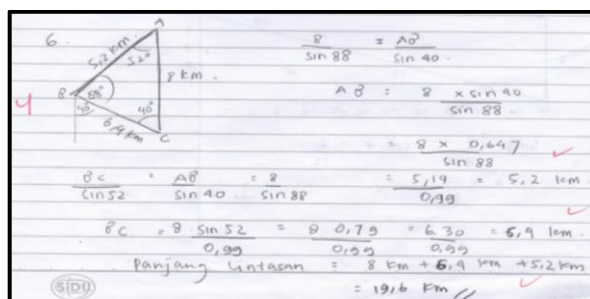 6.
A
5,2 km
52°
8 km.
4
B
88°
40°
40°
6,4 km
C
8 / sin 88 = AB / sin 40.
AB = 8 x sin 40 / sin 88.
= 8 x 0,647 / sin 88
BC / sin 52 = AB / sin 40 = 8 / sin 88
= 5,19 / 0,99 = 5,2 km.
BC = 8 sin 52 / 0,99 = 8 0,79 / 0,99 = 6.30 / 0,99 = 6,4 km.
Panjang lintasan = 8 km + 6,4 km + 5,2 km
= 19,6 km //
SIDU